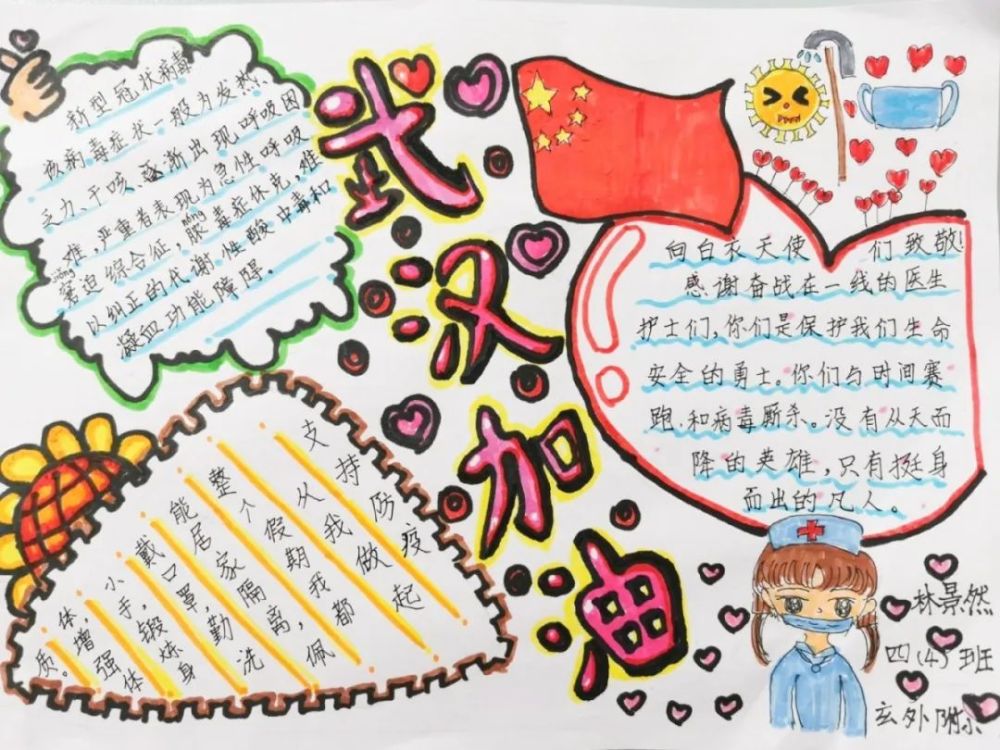 新型冠状病毒
病毒症状一般为发热、
乏力、干咳、逐渐出现呼吸困
难,严重者表现为急性呼吸
窘迫综合征,脓毒症休克,难
以纠正的代谢性酸中毒和
凝血功能障碍。
武汉加油
向白衣天使们致敬!
感谢奋战在一线的医生
护士们,你们是保护我们生命
安全的勇士。你们与时间赛
跑,和病毒厮杀。没有从天而
降的英雄,只有挺身
而出的凡人。
支持防疫
从我做起
整个假期我都
能居家隔离,佩
戴口罩,勤洗
小手,锻炼身
体,增强体
质。
林景然
四(4)班
玄外附小